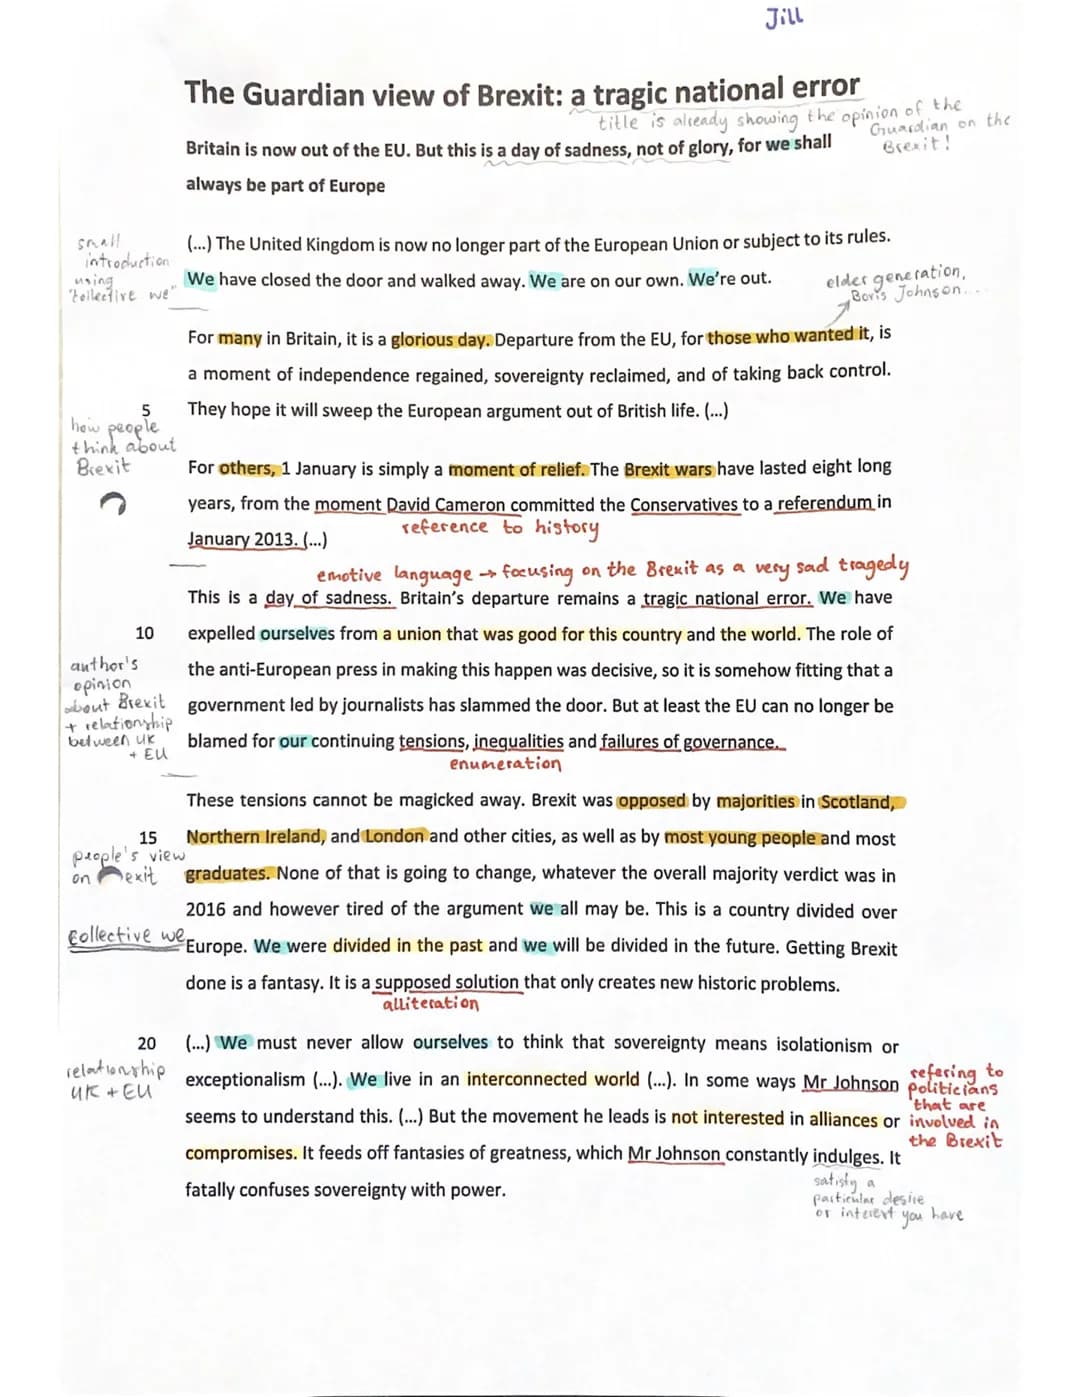 Jill
The Guardian view of Brexit: a tragic national error
title is already showing the opinion of the
Guardian on the
Brexit!
Britain is now out of the EU. But this is a day of sadness, not of glory, for we shall
always be part of Europe
small
introduction
using
"collective we"
(...) The United Kingdom is now no longer part of the European Union or subject to its rules.
We have closed the door and walked away. We are on our own. We're out.
elder generation,
Boris Johnson...
For many in Britain, it is a glorious day. Departure from the EU, for those who wanted it, is
a moment of independence regained, sovereignty reclaimed, and of taking back control.
5 They hope it will sweep the European argument out of British life. (...)
how people
think about
Brexit
For others, 1 January is simply a moment of relief. The Brexit wars have lasted eight long
years, from the moment David Cameron committed the Conservatives to a referendum in
reference to history
January 2013. (...)
emotive language → focusing on the Brexit as a very sad tragedy
This is a day of sadness. Britain's departure remains a tragic national error. We have
10 expelled ourselves from a union that was good for this country and the world. The role of
the anti-European press in making this happen was decisive, so it is somehow fitting that a
government led by journalists has slammed the door. But at least the EU can no longer be
blamed for our continuing tensions, inequalities and failures of governance.
enumeration
author's
opinion
about Brexit
+ relationship
between UK
+ EU
These tensions cannot be magicked away. Brexit was opposed by majorities in Scotland,
15 Northern Ireland, and London and other cities, as well as by most young people and most
graduates. None of that is going to change, whatever the overall majority verdict was in
2016 and however tired of the argument we all may be. This is a country divided over
Europe. We were divided in the past and we will be divided in the future. Getting Brexit
done is a fantasy. It is a supposed solution that only creates new historic problems.
alliteration
people's view
on exit
Collective we
20 (...) We must never allow ourselves to think that sovereignty means isolationism or
exceptionalism (...). We live in an interconnected world (...). In some ways Mr Johnson
seems to understand this. (...) But the movement he leads is not interested in alliances or
compromises. It feeds off fantasies of greatness, which Mr Johnson constantly indulges. It
fatally confuses sovereignty with power.
relationship
UK + EU
refering to
politicians
that are
involved in
the Brexit
satisfy a
particular desire
or interest you have